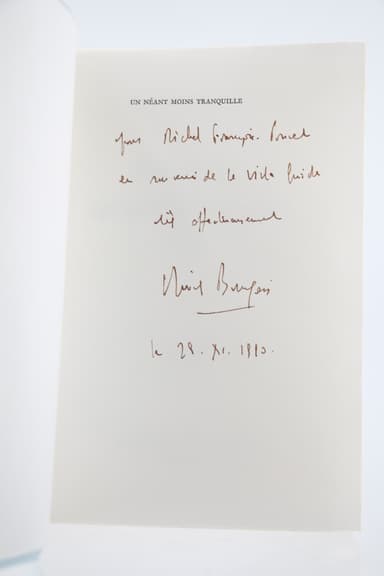 UN NÉANT MOINS TRANQUILLE
pour Michel François-Poncet
en souvenir de la Villa Guida
très affectueusement
le 28. XI. 1990.